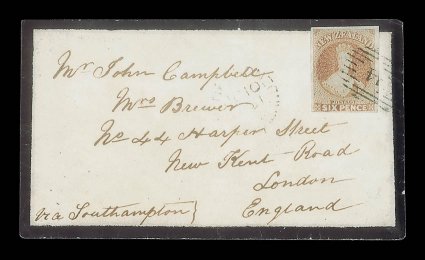 NEW ZEALAND
POSTAGE
SIX PENCE
Mr John Campbell
Mrs Brewer
No 44 Harper Street
New Kent Road
London
via Southampton} England